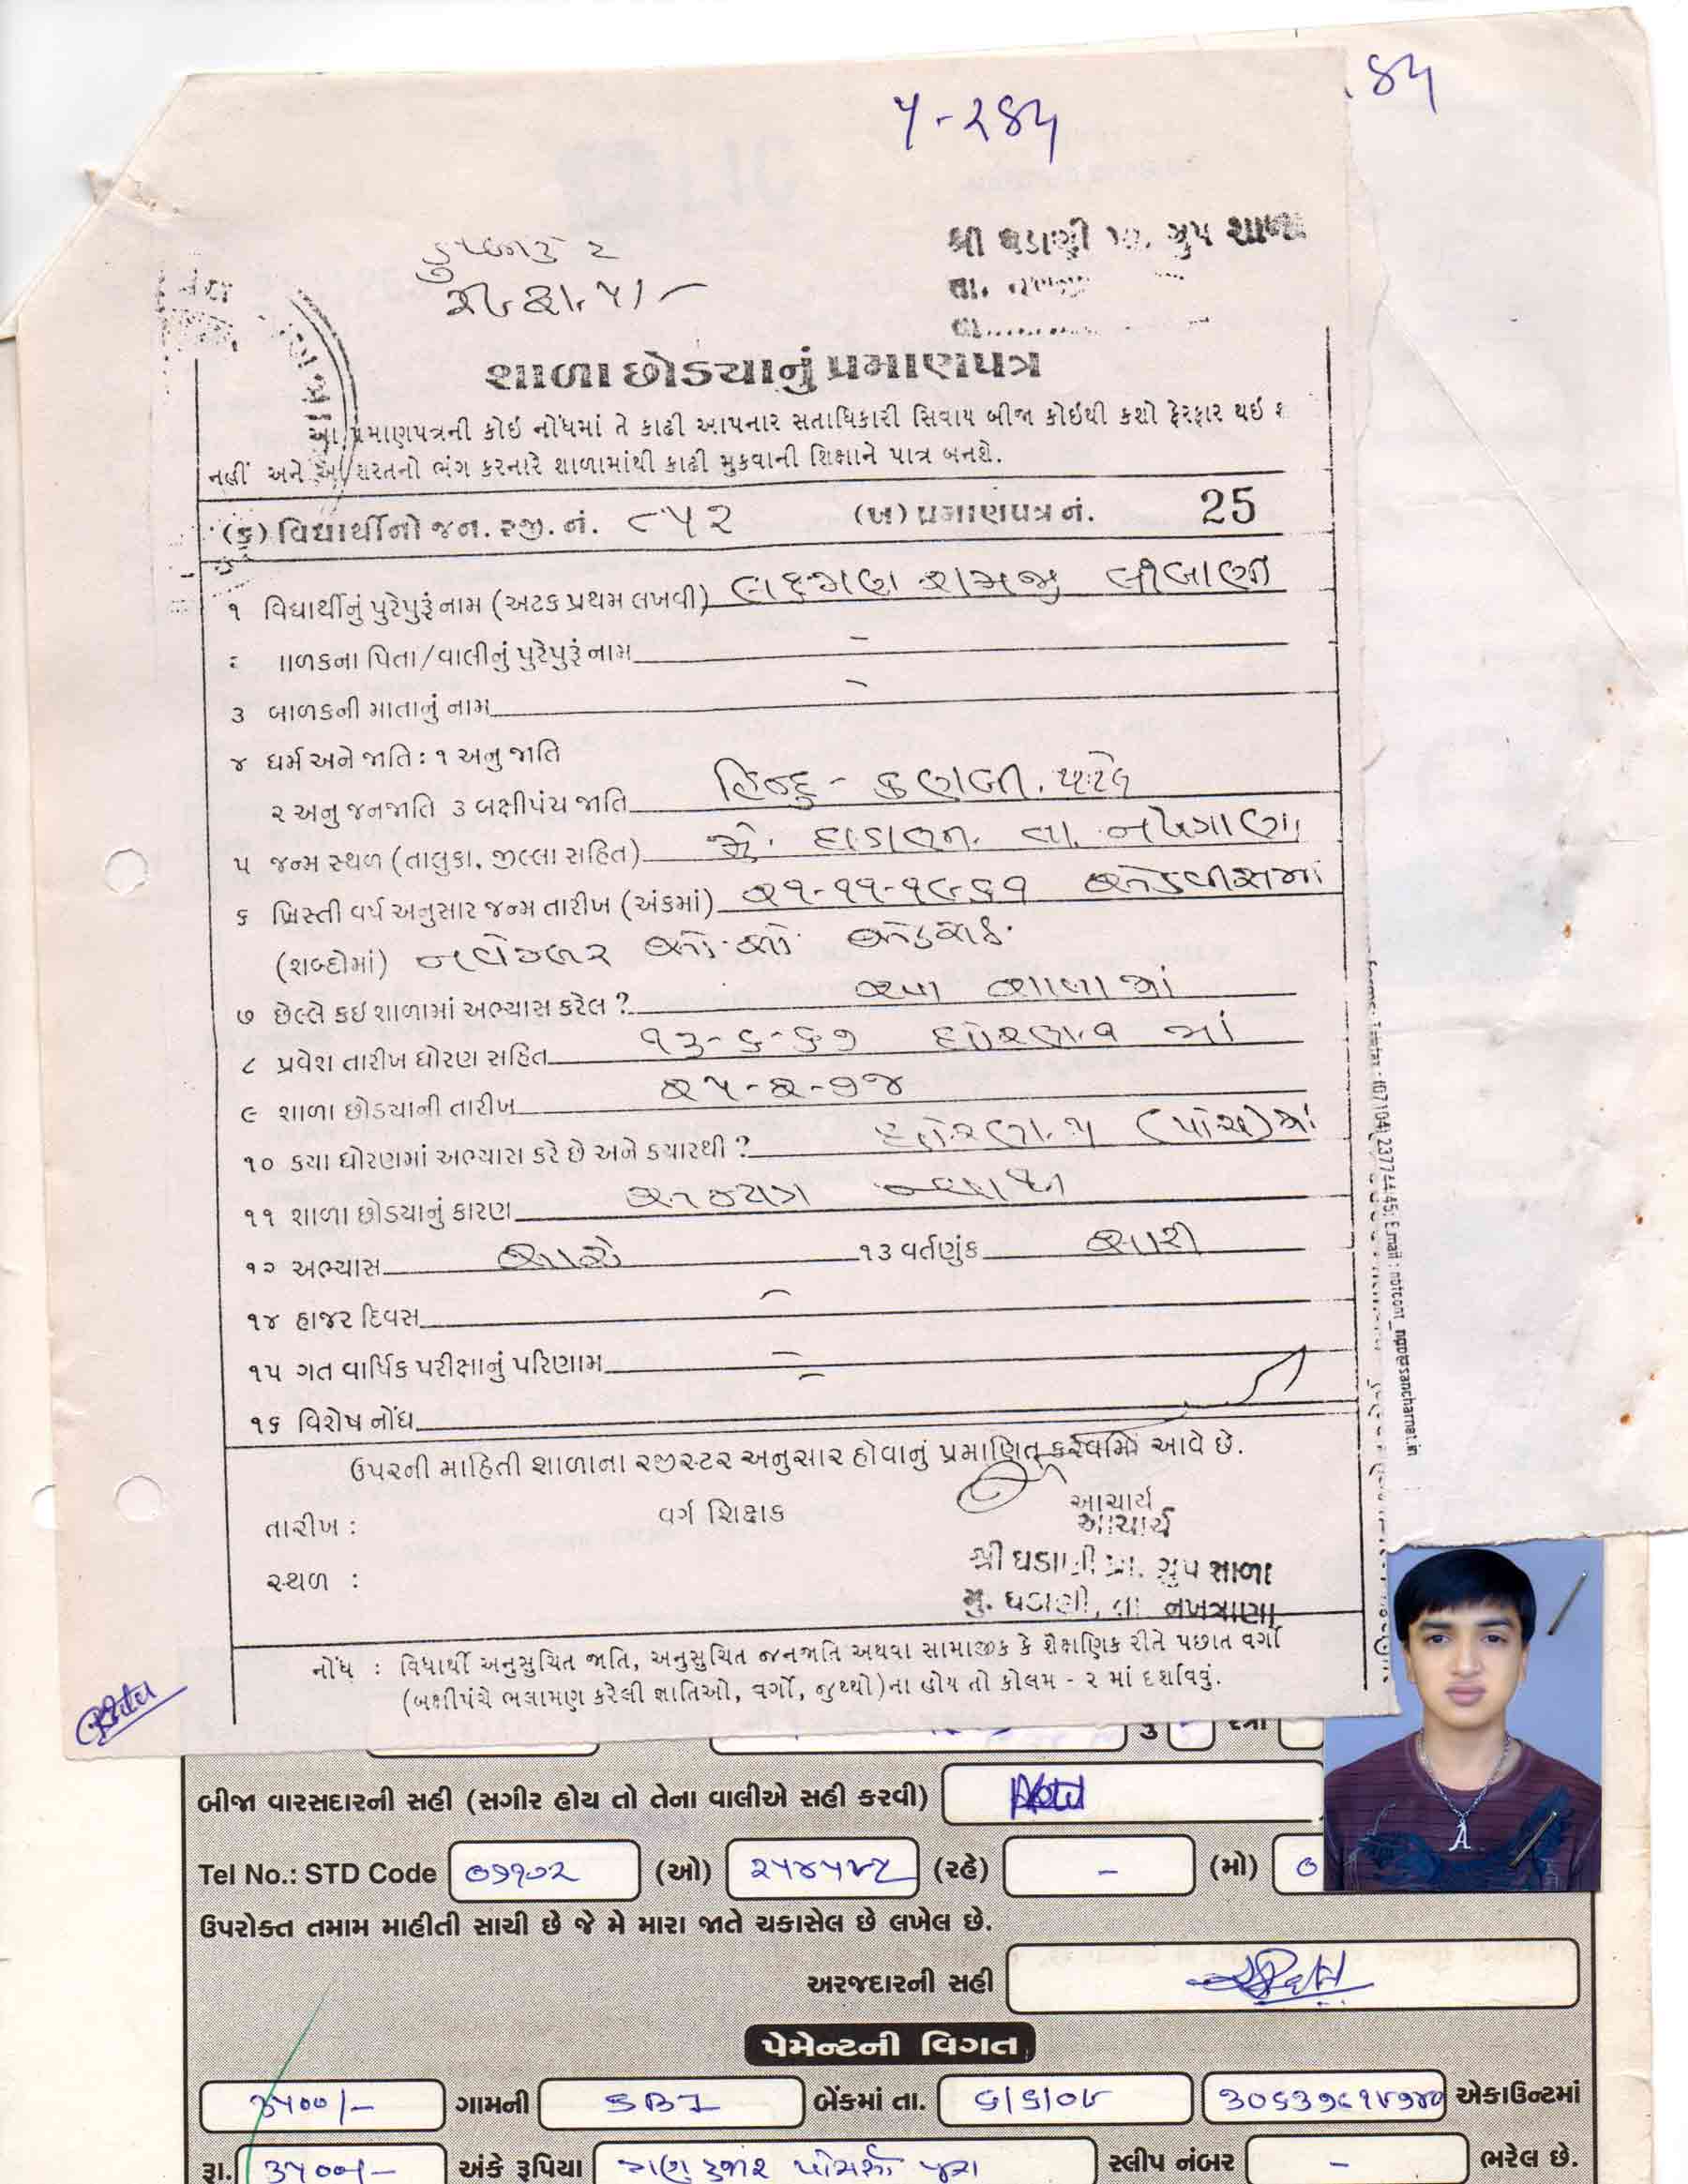 ૬૫
૫-૨૬૫
શ્રી ઘડાણી પ્રા. ગ્રુપ શાળા
તા.
શાળા છોડયાનું પ્રમાણપત્ર
આ પ્રમાણપત્રની કોઇ નોંધમાં તે કાઢી આપનાર સતાધિકારી સિવાય બીજા કોઇથી કશો ફેરફાર થઇ શ
નહીં અને આ શરતનો ભંગ કરનારે શાળામાંથી કાઢી મુકવાની શિક્ષાને પાત્ર બનશે.
(ક) વિદ્યાર્થીનો જન. રજી. નં. ૮૫૨ (ખ) પ્રમાણપત્ર નં. 25
૧ વિદ્યાર્થીનું પુરેપુરૂં નામ (અટક પ્રથમ લખવી) લક્ષ્મણ રામજી લીંબાણી
ાાળકના પિતા/વાલીનું પુરેપુરૂં નામ –
૩ બાળકની માતાનું નામ –
૪ ધર્મ અને જાતિ : ૧ અનુ જાતિ
૨ અનુ જનજાતિ ૩ બક્ષીપંચ જાતિ હિન્દુ - કણબી. પટેલ
૫ જન્મ સ્થળ (તાલુકા, જીલ્લા સહિત) મુ. ઘડાણી તા. નખત્રાણા
૬ ખ્રિસ્તી વર્ષ અનુસાર જન્મ તારીખ (અંકમાં) ૨૧-૧૧-૧૯૬૧ એકવીસમી
(શબ્દોમાં) નવેમ્બર ઓ.સો. એકસઠ.
૭ છેલ્લે કઇ શાળામાં અભ્યાસ કરેલ ? આ શાળામાં
૮ પ્રવેશ તારીખ ધોરણ સહિત ૧૩-૬-૬૭ ધોરણ.૧ માં
૯ શાળા છોડયાની તારીખ ૨૫-૨-૭૪
૧૦ કયા ધોરણમાં અભ્યાસ કરે છે અને કયારથી ? ધોરણ. ૫ (પાંચ)માં
૧૧ શાળા છોડયાનું કારણ અન્યત્ર જવાથી
૧૨ અભ્યાસ સારો ૧૩ વર્તણુંક સારી
૧૪ હાજર દિવસ –
૧૫ ગત વાર્ષિક પરીક્ષાનું પરિણામ –
૧૬ વિશેષ નોંધ –
ઉપરની માહિતી શાળાના રજીસ્ટર અનુસાર હોવાનું પ્રમાણિત કરવામાં આવે છે.
તારીખ : વર્ગ શિક્ષક આચાર્ય
આચાર્ય
સ્થળ : શ્રી ઘડાણી પ્રા. ગ્રુપ શાળા
મુ. ઘડાણી, તા નખત્રાણા
નોંધ : વિધાર્થી અનુસુચિત જાતિ, અનુસુચિત જનજાતિ અથવા સામાજીક કે શૈક્ષણિક રીતે પછાત વર્ગો
(બક્ષીપંચે ભલામણ કરેલી જ્ઞાતિઓ, વર્ગો, જુથ્થો)ના હોય તો કોલમ - ૨ માં દર્શાવવું.
(07104) 237744,45; E.mail : notcont_ngp@sancharnet.in
બીજા વારસદારની સહી (સગીર હોય તો તેના વાલીએ સહી કરવી)
Tel No.: STD Code ૦૭૧૦૨ (ઓ) (રહે) – (મો) ૦
A
ઉપરોક્ત તમામ માહીતી સાચી છે જે મે મારા જાતે ચકાસેલ છે લખેલ છે.
અરજદારની સહી
પેમેન્ટની વિગત
૩૫૦૦/- ગામની SBI બેંકમાં તા. ૬/૬/૦૯ એકાઉન્ટમાં
રૂા. ૩૫૦૦/- અંકે રૂપિયા ત્રણ હજાર પાંચસો પુરા સ્લીપ નંબર – ભરેલ છે.